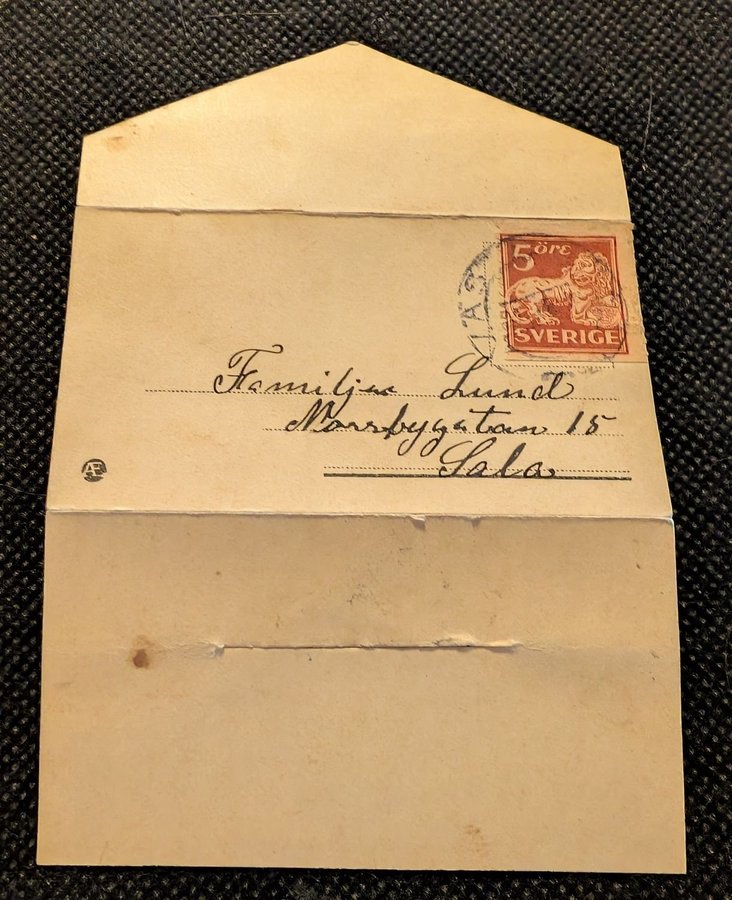 5 öre
SVERIGE
Familjen Lund
Norrbygatan 15
Sala
AF